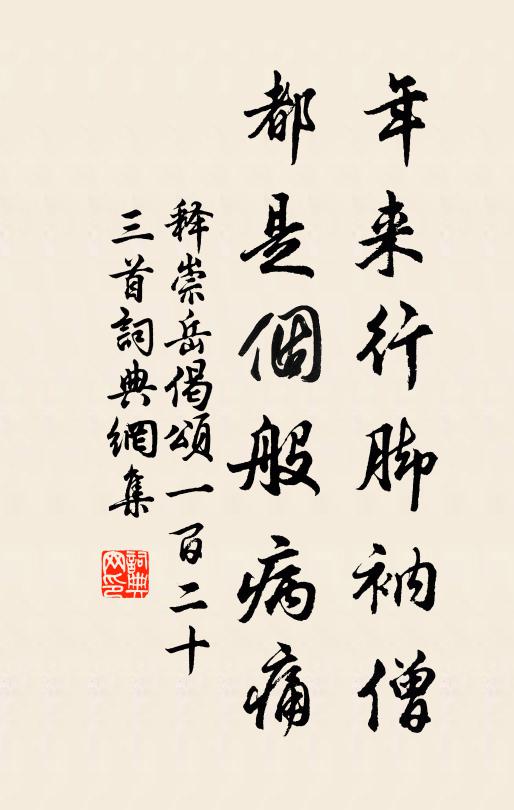 年来行脚衲僧
都是個般病痛
释崇岳偈頌一百二十
三首詞典網集
詞典网印